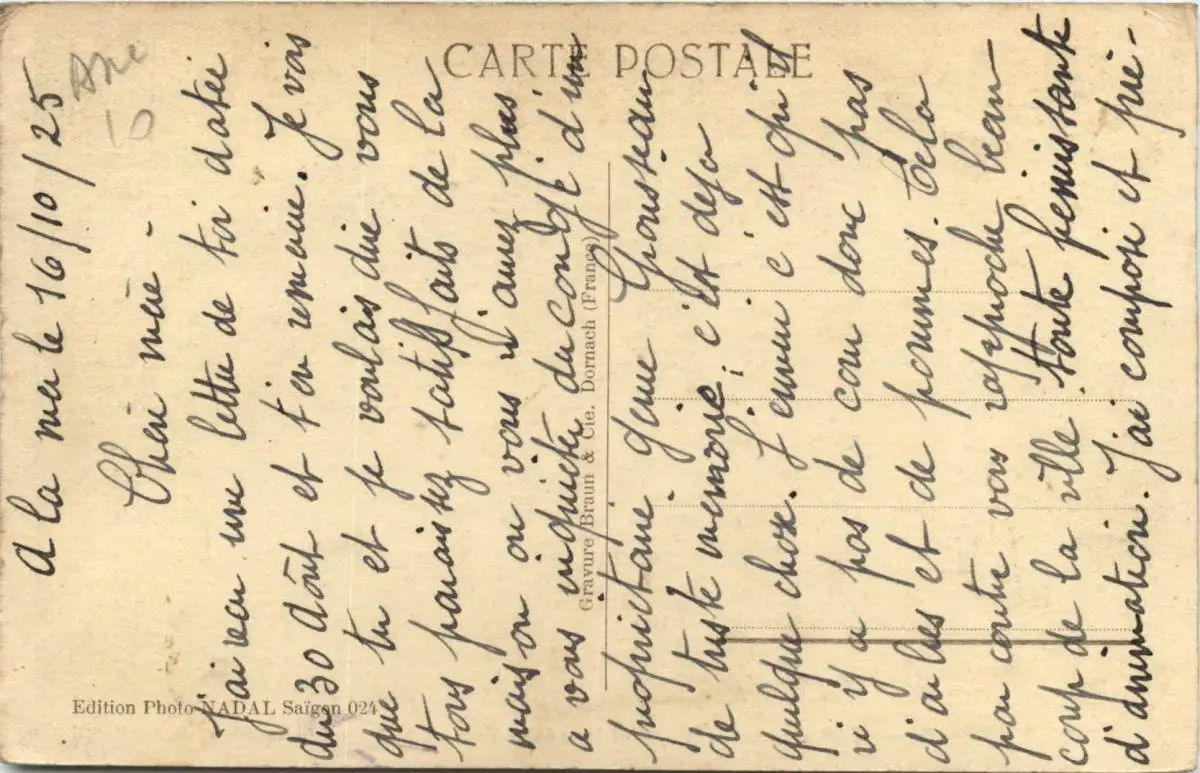 CARTE POSTALE
Ane
10
A la mer le 16/10/25
Chère mère -
J'ai reçu une lettre de toi datée
du 30 Août et t'en remercie. Je vois
que tu et je voulais dire vous
tous paraissez satisfaits de la
maison ou vous n'aurez plus
a vous inquiéter du congé d'un
propriétaire genre
de triste memoire ; c'est deja
quelque chose. L'ennui c'est qu'il
n'y a pas de cou donc pas
d'arbres et de pommes. Cela
par contre vous rapproche beau
coup de la ville toute
d'animation. J'ai composé et pre-
Gravure Braun & Cie, Dornach (France)
Edition Photo NADAL Saïgon 024